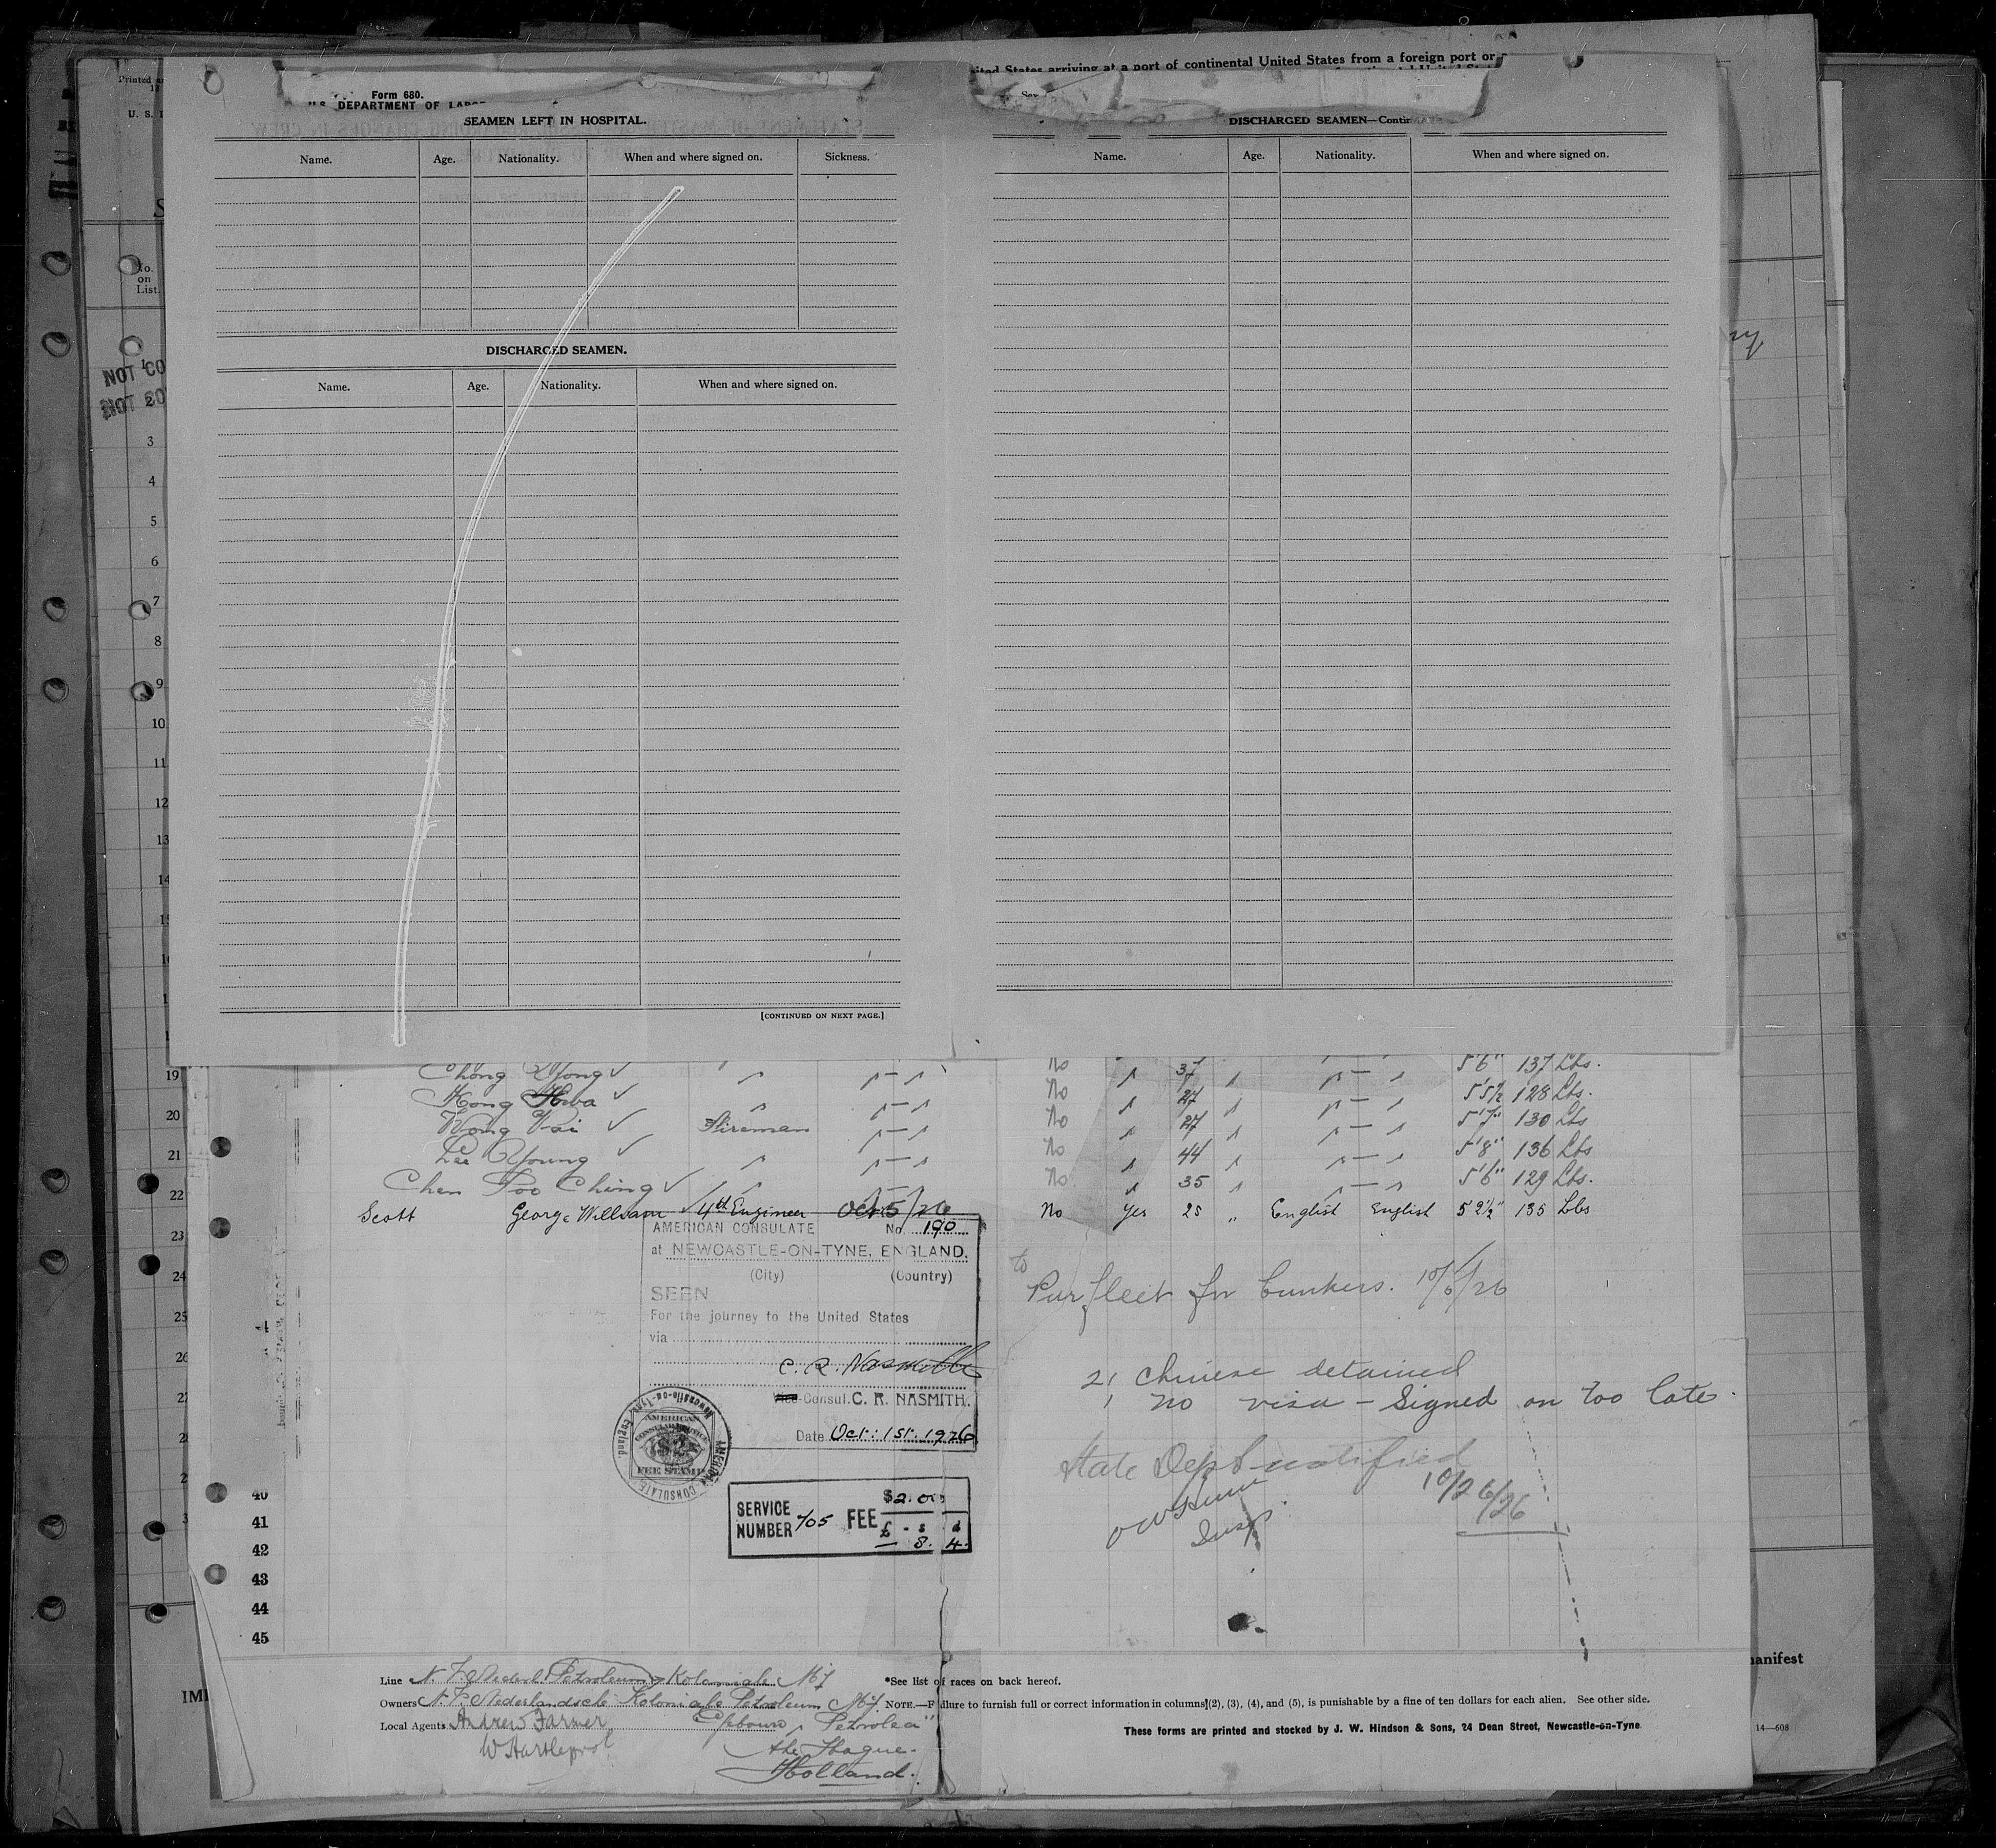 Printed
U. S.
No.
on
List.
NOT CO
NOT CO
ited States arriving at a port of continental United States from a foreign port or
Form 680.
U.S. DEPARTMENT OF LABO
Sex
SEAMEN LEFT IN HOSPITAL.
Name. Age. Nationality. When and where signed on. Sickness.
DISCHARGED SEAMEN.
Name. Age. Nationality. When and where signed on.
[CONTINUED ON NEXT PAGE.]
DISCHARGED SEAMEN—Contin
Name. Age. Nationality. When and where signed on.
1
2
3
4
5
6
7
8
9
10
11
12
13
14
19
20
21
22
23
24
25
26
Chong Yong ✓ No 37 5'6" 137 Lbs.
Hong Hwa ✓ No 27 5'5½ 128 Lbs.
Wong Vai ✓ Fireman No 27 5'7" 130 Lbs
Lee Young ✓ No 44 5'8" 136 Lbs
Chen Foo Ching ✓ No 35 5'6" 129 Lbs.
Scott George William ✓ 4th Engineer Oct 5/26 No Yes 25 " English English 5 2½" 135 Lbs
AMERICAN CONSULATE No. 190
at NEWCASTLE-ON-TYNE, ENGLAND.
(City) (Country)
SEEN
For the journey to the United States
via
C. R. Nasmith
Vice-Consul. C. R. NASMITH.
Date Oct: 1st. 1926
AMERICAN
CONSULAR SERVICE
$2
FEE STAMP
AMERICAN CONSULATE
Newcastle-on-Tyne, England.
SERVICE NUMBER 705 FEE $2.00
£ - s d
— 8. 4.
to
Purfleet for bunkers. 10/6/26
21 Chinese detained
1 no visa - Signed on too late.
State Dept notified
10/26/26
Insp.
40
41
42
43
44
45
Line N.V. Nederl. Petroleum Koloniale Mij
Owners N.V. Nederlandsche Koloniale Petroleum Mij.
Local Agents Andrew Farmer Gebouw "Petrolea"
W Hartlepool the Hague.
Holland.
*See list of races on back hereof.
NOTE.—Failure to furnish full or correct information in columns (2), (3), (4), and (5), is punishable by a fine of ten dollars for each alien. See other side.
These forms are printed and stocked by J. W. Hindson & Sons, 24 Dean Street, Newcastle-on-Tyne
anifest
14—608
IM